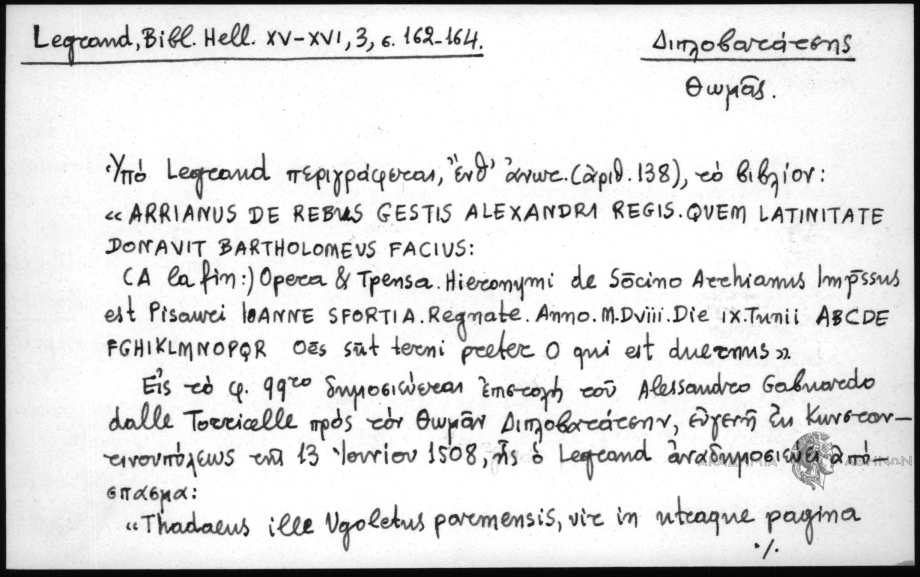 Legrand, Bibl. Hell. XV–XVI, 3, σ. 162-164.
Διπλοβατάτσης
Θωμᾶς.
Ὑπό Legrand περιγράφεται, ἔνθ' ἀνωτ. (ἀριθ. 138), τό βιβλίον:
« ARRIANUS DE REBUS GESTIS ALEXANDRI REGIS. QVEM LATINITATE
DONAVIT BARTHOLOMEVS FACIUS:
(A la fin:) Opera & Ipensa. Hieronymi de Sōcino Archianus Impōssus
est Pisauri IOANNE SFORTIA. Regnate. Anno. M.Dviii. Die IX. Iunii ABCDE
FGHIKLMNOPQR Oēs sūt terni preter O qui est duernus ».
Εἰς τό φ. 99ro δημοσιεύεται ἐπιστολή τοῦ Alessandro Gabuardo
dalle Torricelle πρός τόν Θωμᾶν Διπλοβατάτσην, εὐγενῆ ἐκ Κωνσταν–
τινουπόλεως τῇ 13 Ἰουνίου 1508, ἧς ὁ Legrand ἀναδημοσιεύει ἀπό–
σπασμα:
« Thadaeus ille Vgoletus parmensis, vir in utraque pagina
·/.